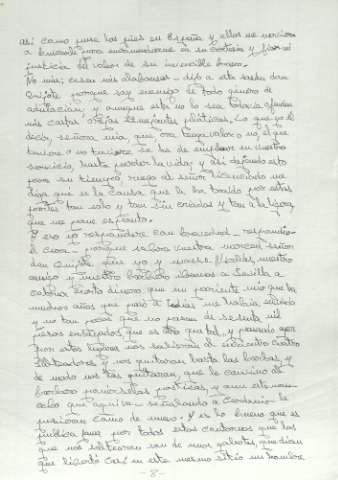 así como puse los pies en España y ellos me movieron
a buscarle para encomendarme en su cortesía y fiar mi
justicia del valor de su invencible brazo.
No más; cesen mis alabanzas - dijo a esta sazón don
Quijote porque soy enemigo de todo género de
adulación; y aunque esta no lo sea todavía ofenden
mis castas orejas semejantes pláticas. Lo que yo sé
decir, señora mía, que ora tenga valor o no, el que
tuviere o no tuviere se ha de emplear en vuestro
servicio, hasta perder la vida; y así dejando esto
para su tiempo, ruego al señor licenciado me
diga que es la causa que le ha traído por estas
partes tan solo y tan sin criados y tan a la ligera,
que me pone espanto.
A eso yo responderé con brevedad - respondió
el cura - porque sabrá vuestra merced, señor
don Quijote que yo y maese Nicolás, nuestro
amigo y nuestro barbero íbamos a Sevilla a
cobrar cierto dinero que un pariente mío que ha
muchos años que pasó a Indias me había enviado
y no tan pocos que no pasan de sesenta mil
pesos ensayados, que es otro que tal; y pasando ayer
por estos lugares nos salieron al encuentro cuatro
salteadores y nos quitaron hasta las barbas, y
de modo nos las quitaron, que le convino al
barbero ponérselas postizas, y aun a este man-
cebo que aquí va - señalando a Cardenio - le
pusieron como de nuevo. Y es lo bueno que es
pública fama por todos estos contornos que los
que nos saltearon son de unos galeotes, que dicen
que libertó casi en este mismo sitio un hombre
- 8 -